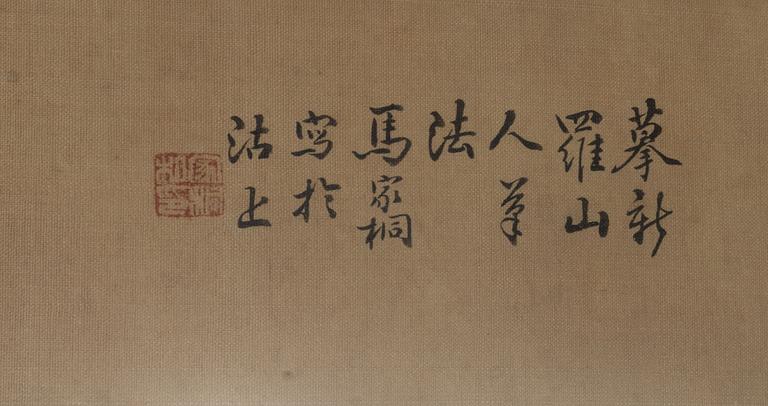 摹新
羅山
人筆
法
馬家桐
寫於
沽上